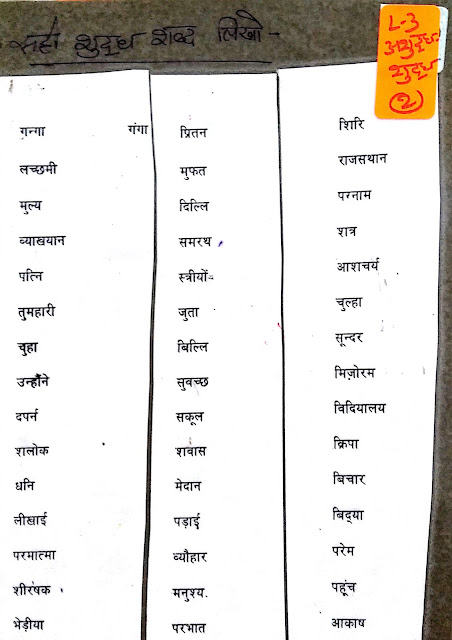 सही शुद्ध शब्द लिखो -
L-3
अशुद्ध-
शुद्ध
(2)
गन्गा गंगा
लच्छमी
मुल्य
व्याखयान
पत्नि
तुमहारी
चुहा
उन्होंने
दपर्न
शलोक
धनि
लीखाई
परमात्मा
शीरषक
भेड़ीया
प्रितन
मुफत
दिल्लि
समरथ
स्त्रीयों
जुता
बिल्लि
सुवच्छ
सकूल
शवास
मेदान
पड़ाई
व्यौहार
मनुश्य
परभात
शिरि
राजसथान
परनाम
शत्र
आशचर्य
चुल्हा
सून्दर
मिज़ोरम
विदियालय
क्रिपा
बिचार
बिद्या
परेम
पहूंच
आकाष